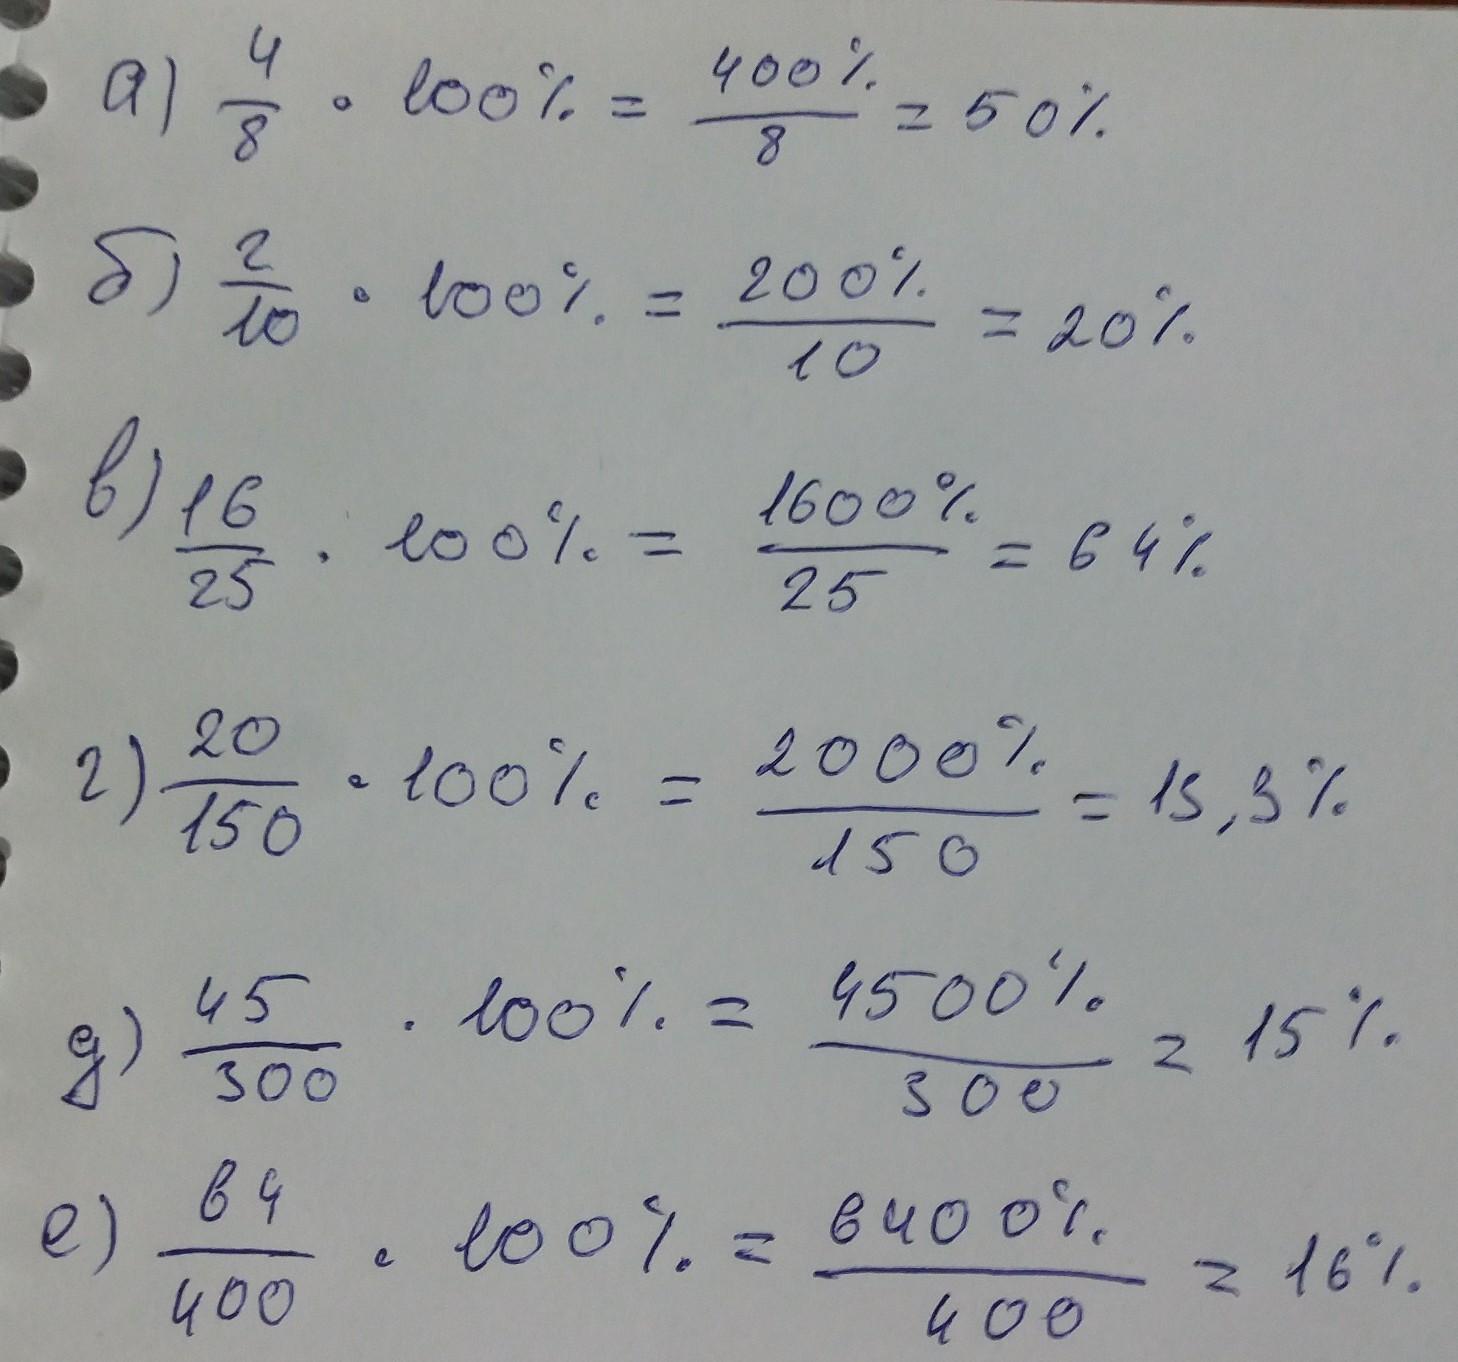 а) 4/8 · 100% = 400%/8 = 50%
б) 2/10 · 100% = 200%/10 = 20%
в) 16/25 · 100% = 1600%/25 = 64%
г) 20/150 · 100% = 2000%/150 = 13,3%
д) 45/300 · 100% = 4500%/300 = 15%
е) 64/400 · 100% = 6400%/400 = 16%